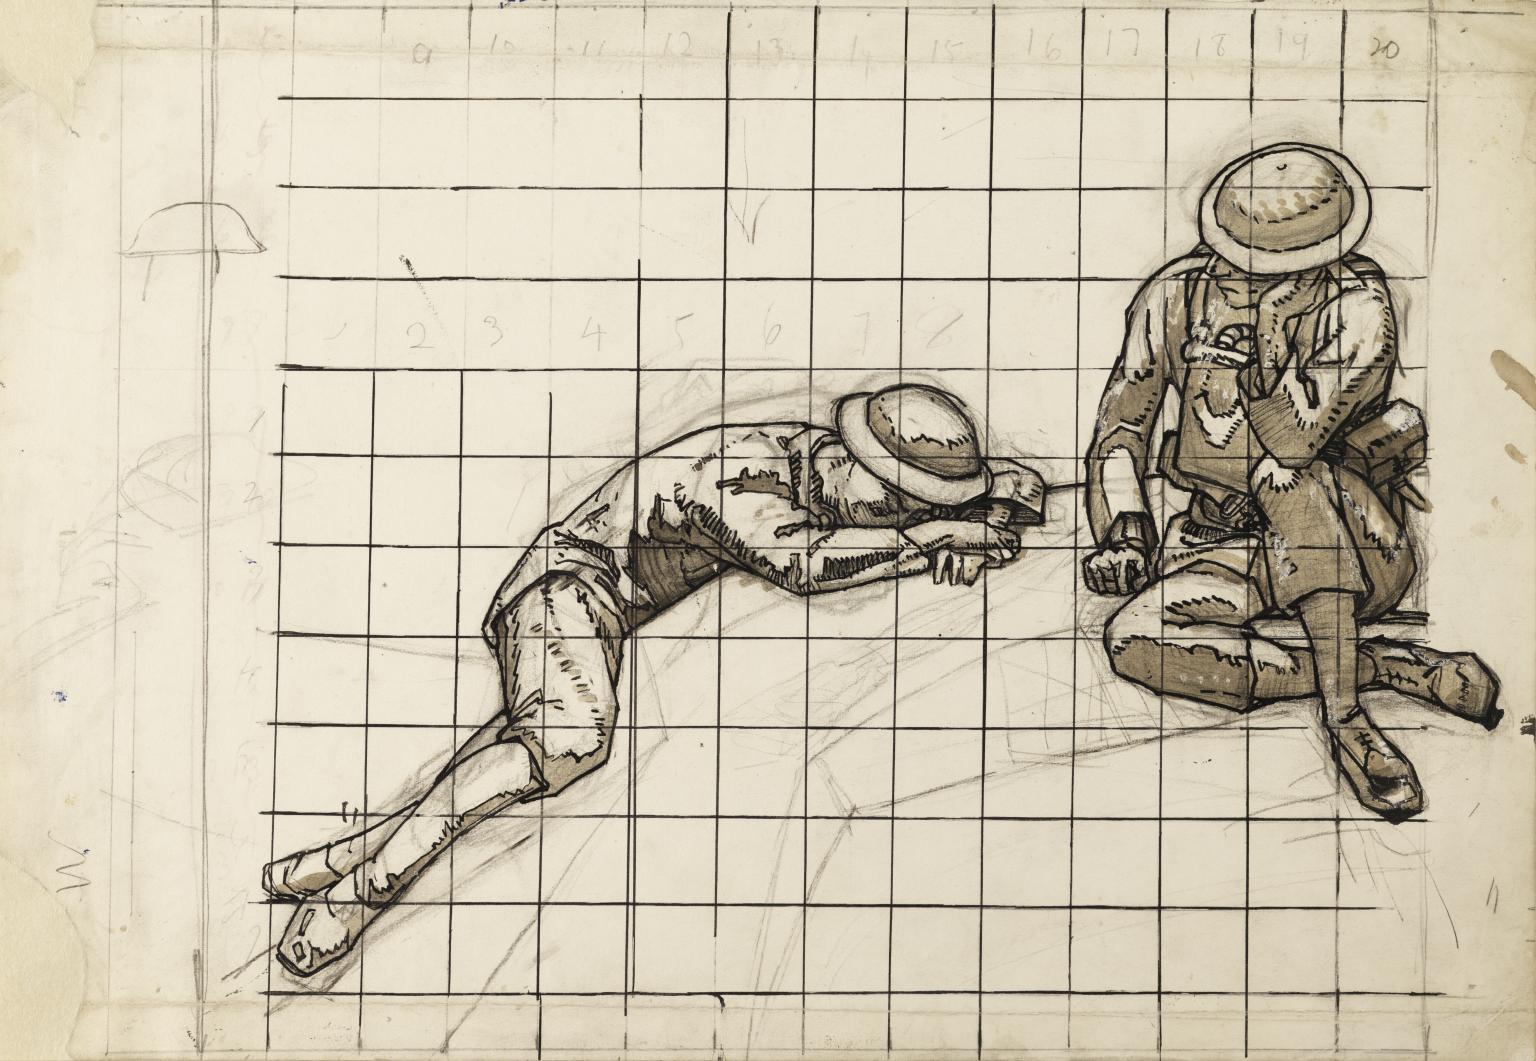 9 10 11 12 13 14 15 16 17 18 19 20
2 3 4 5 6 7 8
1
2
4
W